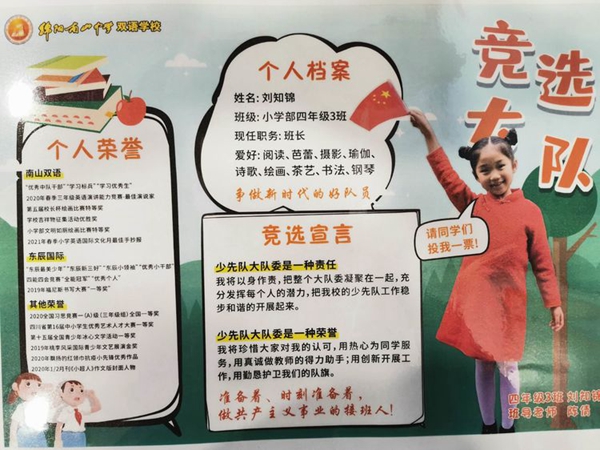 绵阳南山中学双语学校
竞选
大队
个人荣誉
南山双语
“优秀中队干部”“学习标兵”“学习优秀生”
2020年春季三年级英语演讲能力竞赛·最佳演说家
第五届校长杯绘画比赛特等奖
学校吉祥物征集活动优胜奖
小学部文明如厕绘画比赛特等奖
2021年春季小学英语国际文化月最佳手抄报
东辰国际
“东辰最美少年”“东辰新三好”“东辰小领袖”“优秀小干部”
四能四会竞赛“全能冠军”“优秀个人”
2019年福尼斯书写大赛“一等奖”
其他荣誉
2020全国习思竞赛一(A)级(三年级组)全国一等奖
四川省第16届中小学生优秀艺术人才大赛一等奖
第十五届全国青少年冰心文学活动一等奖
2019年桃李风采国际青少年文艺展演金奖
2020年飘扬的红领巾抗疫小先锋优秀作品
2020年1/2月刊《小超人》作文版封面人物
个人档案
姓名: 刘知锦
班级: 小学部四年级3班
现任职务: 班长
爱好: 阅读、芭蕾、摄影、瑜伽、
诗歌、绘画、茶艺、书法、钢琴
争做新时代的好队员
竞选宣言
少先队大队委是一种责任
我将以身作责,把整个大队委凝聚在一起,充
分发挥每个人的潜力,把我校的少先队工作稳
步和谐的开展起来。
少先队大队委是一种荣誉
我将珍惜大家对我的认可,用热心为同学服
务,用真诚做教师的得力助手;用创新开展工
作,用勤恳护卫我们的队旗。
准备着、时刻准备着,
做共产主义事业的接班人!
请同学们
投我一票!
四年级3班 刘知锦
班导老师 陈倩